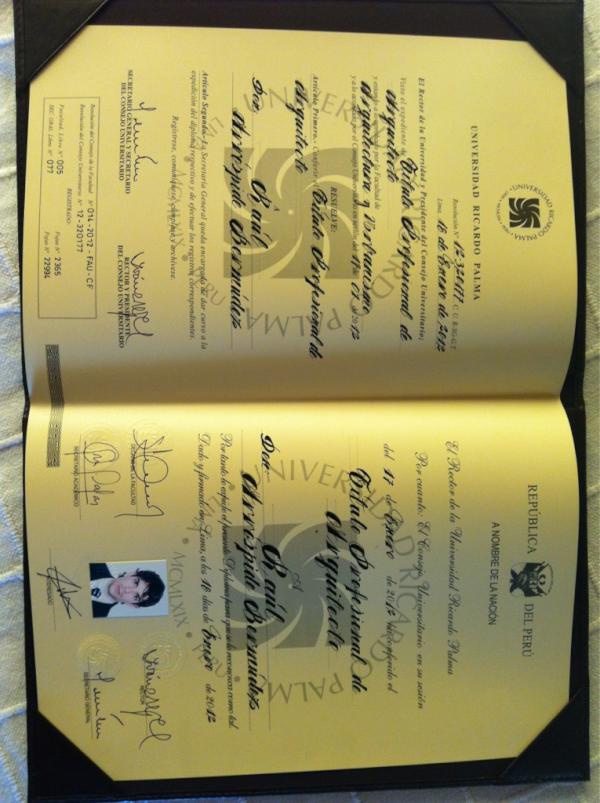 UNIVERSIDAD RICARDO PALMA
UNIVERSIDAD RICARDO PALMA
Resolución Nº 12-320177 C. U. R-SG-G.T.
Lima, 18 de Enero de 2012
El Rector de la Universidad y Presidente del Consejo Universitario;
Visto el expediente de Título Profesional de
Arquitecto
Facultad de
Arquitectura y Urbanismo
y a lo acordado por el Consejo Universitario en sesión del 17 01 2012
RESUELVE:
Artículo Primero.- Conferir el Título Profesional de
Arquitecto
Don Raúl
Arróspide Bermúdez
Artículo Segundo.- La Secretaría General queda encargada de dar curso a la
expedición del diploma respectivo y de efectuar los registros correspondientes.
Regístrese, comuníquese y archívese.
SECRETARIO GENERAL Y SECRETARIO
DEL CONSEJO UNIVERSITARIO
RECTOR Y PRESIDENTE
DEL CONSEJO UNIVERSITARIO
Resolución del Consejo de la Facultad Nº 014-2012-FAU-CF
Resolución del Consejo Universitario Nº 12-320177
REGISTRADO
Facultad, Libro Nº 005 Fojas Nº 2365
SEC. GRAL. Libro Nº 077 Fojas Nº 22994
REPÚBLICA DEL PERÚ
A NOMBRE DE LA NACIÓN
El Rector de la Universidad Ricardo Palma
Por cuanto: El Consejo Universitario en su sesión
del 17 de Enero de 2012 ha conferido el
Título Profesional de
Arquitecto
A
Don Raúl
Arróspide Bermúdez
Por tanto le expide el presente Diploma para que se le reconozca como tal.
Dado y firmado en Lima, a los 18 días de Enero de 2012
DECANO DE LA FACULTAD
SECRETARIO ACADÉMICO
INTERESADO
SECRETARIO GENERAL
UNIVERSIDAD RICARDO PALMA
LIMA PERU
MCMLXIX